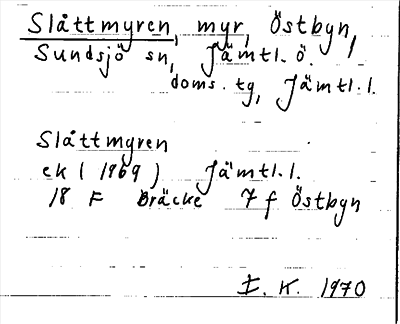 Slåttmyren, myr, Östbyn,
Sundsjö sn, Jämtl. ö.
doms. tg, Jämtl. l.
Slåttmyren
ek (1969) Jämtl. l.
18 F Bräcke 7 f Östbyn
E. K. 1970